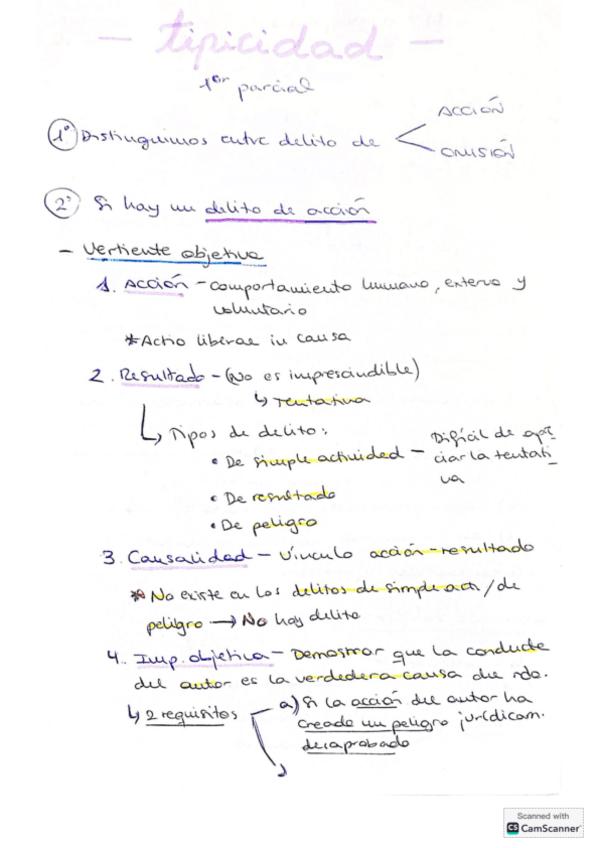 - tipicidad -
1er parcial
1º Distinguimos entre delito de
ACCIÓN
OMISIÓN
2º Si hay un delito de acción
- Vertiente objetiva
1. Acción - comportamiento humano, externo y
voluntario
*Actio liberae in causa
2. Resultado - (No es imprescindible)
↳ Tentativa
↳ Tipos de delito:
• De simple actividad - Difícil de apre
ciar la tentati
va
• De resultado
• De peligro
3. Causalidad - Vínculo acción-resultado
* No existe en los delitos de simple act/de
peligro → No hay delito
4. Imp. objetiva - Demostrar que la conducta
del autor es la verdedera causa del rdo.
↳ 2 requisitos
a) Si la acción del autor ha
creado un peligro jurídicam.
desaprobado
Scanned with
CS CamScanner